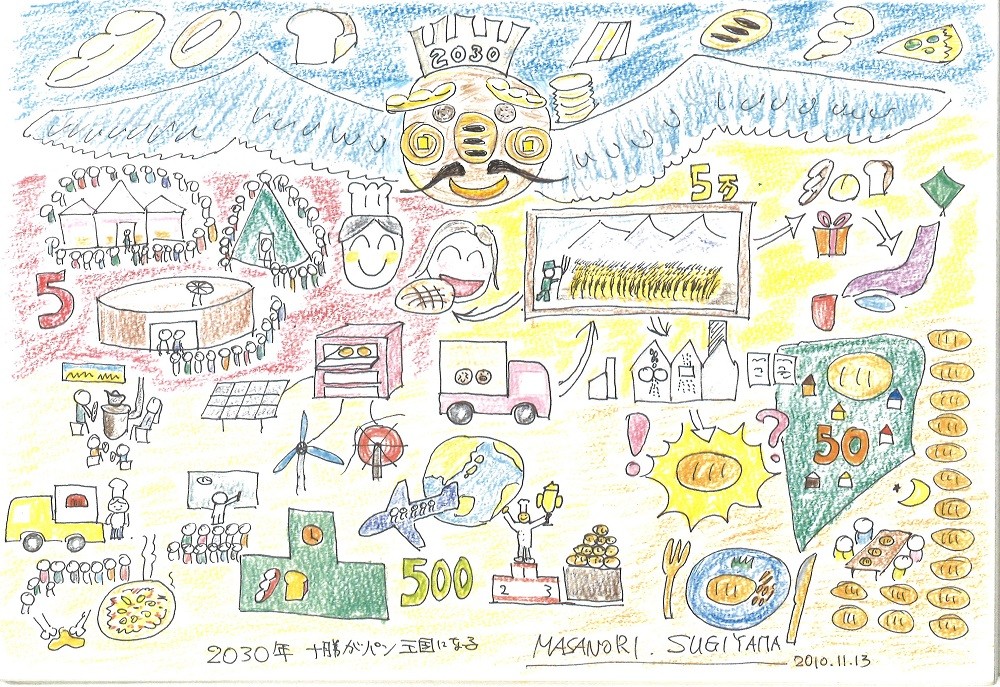 2030
5万
5
50
!
?
500
2
3
2030年 十勝がパン王国になる
MASANORI. SUGIYAMA
2010.11.13